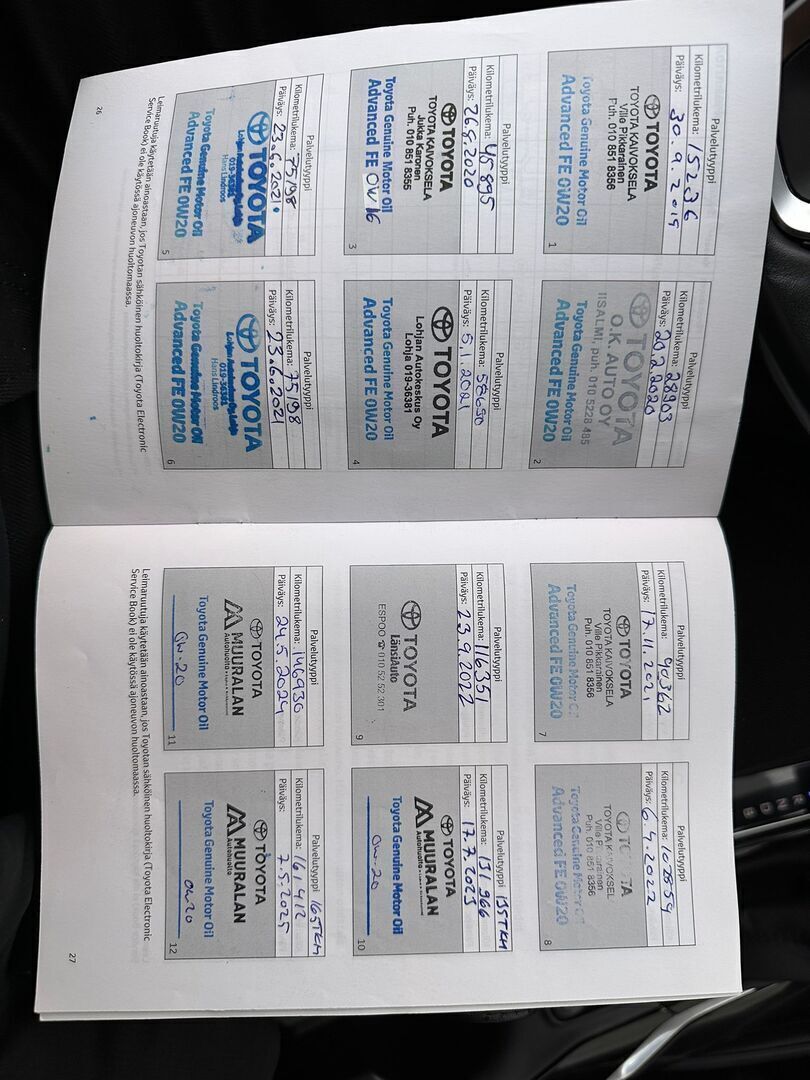 Palvelutyyppi
Kilometrilukema: 15236
Päiväys: 30.9.2019
TOYOTA
TOYOTA KAIVOKSELA
Ville Pikkarainen
Puh. 010 851 8356
Toyota Genuine Motor Oil
Advanced FE 0W20
1
Palvelutyyppi
Kilometrilukema: 28903
Päiväys: 20.2.2020
TOYOTA
O.K. AUTO OY
IISALMI, puh. 010 5228 485
Toyota Genuine Motor Oil
Advanced FE 0W20
2
Palvelutyyppi
Kilometrilukema: 45895
Päiväys: 26.8.2020
TOYOTA
TOYOTA KAIVOKSELA
Jukka Kanonen
Puh. 010 851 8356
Toyota Genuine Motor Oil
Advanced FE 0W16
3
Palvelutyyppi
Kilometrilukema: 58690
Päiväys: 5.1.2021
TOYOTA
Lohjan Autokeskus Oy
Lohja 019-36381
Toyota Genuine Motor Oil
Advanced FE 0W20
4
Palvelutyyppi
Kilometrilukema: 75198
Päiväys: 23.6.2021
TOYOTA
Hans Lindroos
Toyota Genuine Motor Oil
Advanced FE 0W20
5
Palvelutyyppi
Kilometrilukema: 75198
Päiväys: 23.6.2021
TOYOTA
Hans Lindroos
Toyota Genuine Motor Oil
Advanced FE 0W20
6
Leimaruutuja käytetään ainoastaan, jos Toyotan sähköinen huoltokirja (Toyota Electronic
Service Book) ei ole käytössä ajoneuvon huoltomaassa.
26
Palvelutyyppi
Kilometrilukema: 90362
Päiväys: 17.11.2021
TOYOTA
TOYOTA KAIVOKSELA
Ville Pikkarainen
Puh. 010 851 8356
Toyota Genuine Motor Oil
Advanced FE 0W20
7
Palvelutyyppi
Kilometrilukema: 102859
Päiväys: 6.4.2022
TOYOTA
Puh. 010 851 8356
Toyota Genuine Motor Oil
Advanced FE 0W20
8
Palvelutyyppi
Kilometrilukema: 116351
Päiväys: 23.9.2022
TOYOTA
LänsiAuto
ESPOO ☎ 010 52 52 301
9
Palvelutyyppi 135TKM
Kilometrilukema: 131966
Päiväys: 17.7.2023
TOYOTA
MUURALAN
Autohuolto
Toyota Genuine Motor Oil
0w-20
10
Palvelutyyppi
Kilometrilukema: 146930
Päiväys: 24.5.2024
TOYOTA
MUURALAN
Autohuolto
Toyota Genuine Motor Oil
0w-20
11
Palvelutyyppi 165TKM
Kilometrilukema: 161412
Päiväys: 7.5.2025
TOYOTA
MUURALAN
Autohuolto
Toyota Genuine Motor Oil
0w20
12
Leimaruutuja käytetään ainoastaan, jos Toyotan sähköinen huoltokirja (Toyota Electronic
Service Book) ei ole käytössä ajoneuvon huoltomaassa.
27